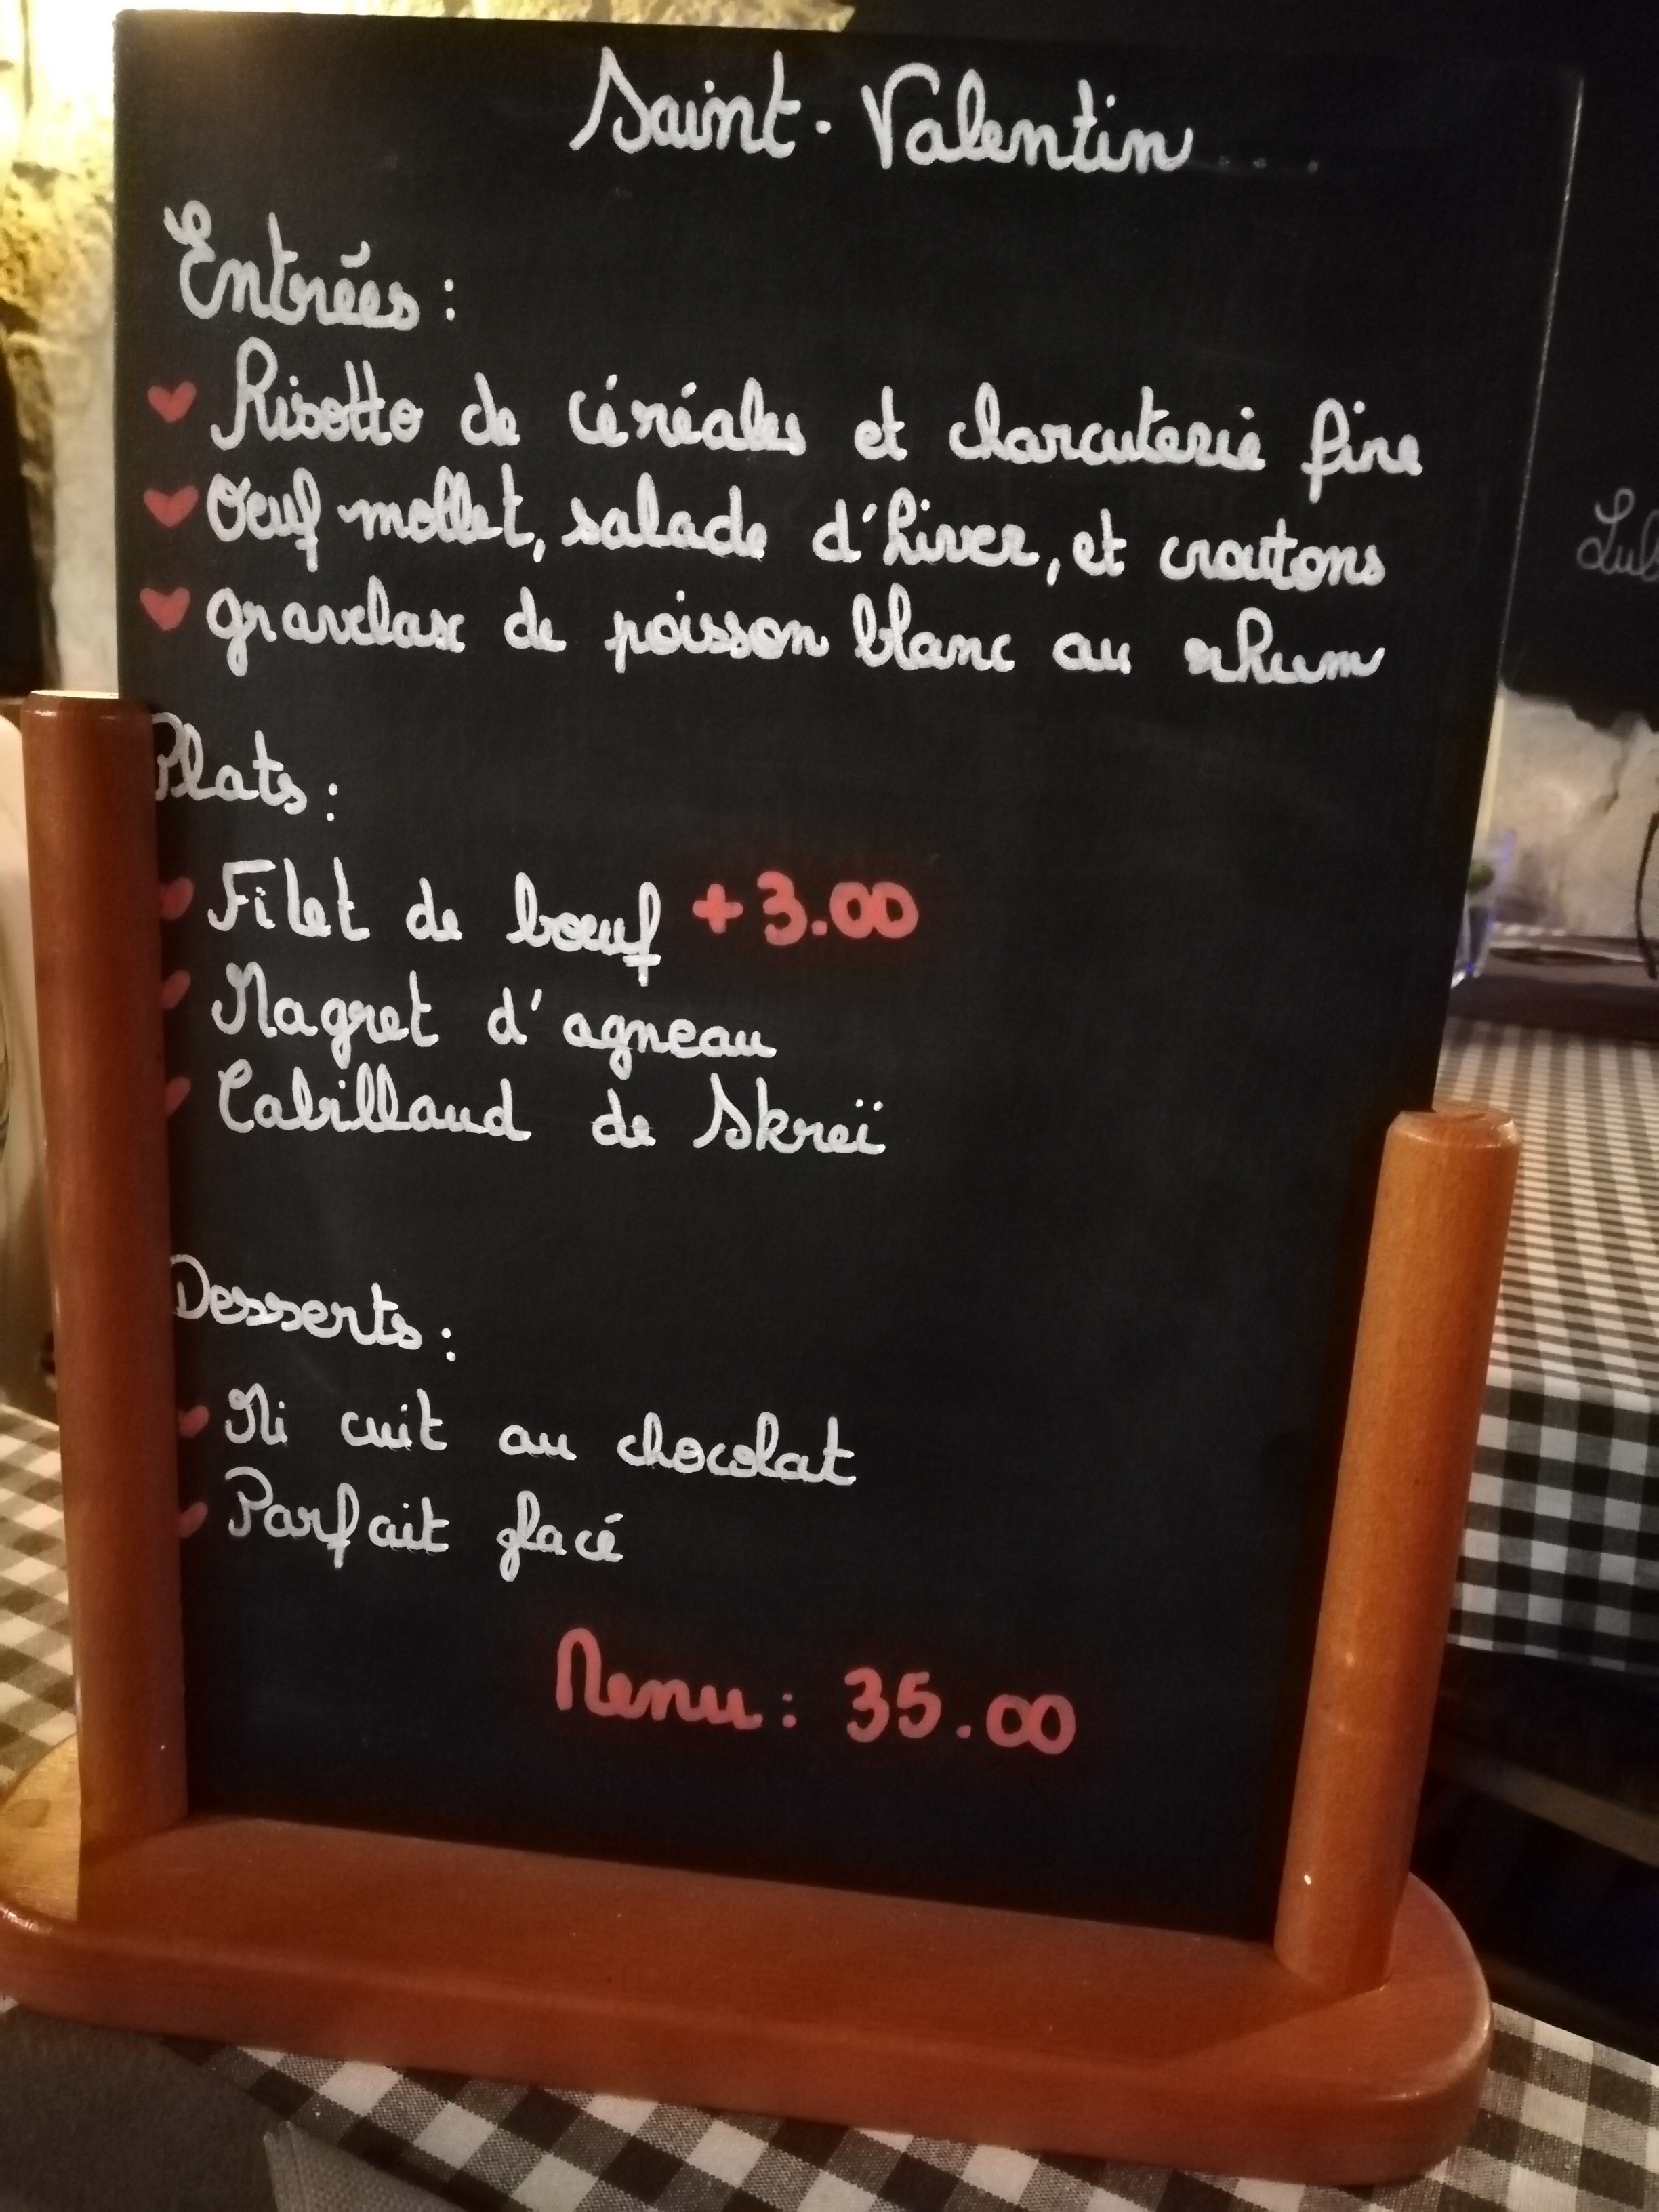 Saint-Valentin
Entrées :
Risotto de céréales et charcuterie fine
Oeuf mollet, salade d'hiver, et croutons
gravelax de poisson blanc au rhum
Plats :
Filet de bœuf +3.00
Magret d'agneau
Cabillaud de Skreï
Desserts :
Mi cuit au chocolat
Parfait glacé
Menu : 35.00